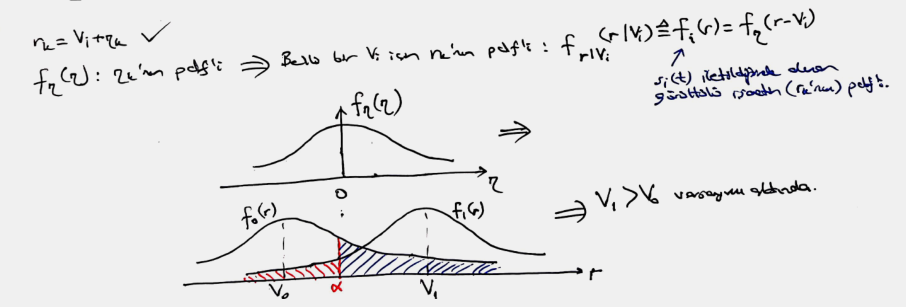 r_k = V_i + η_k ✓
f_η(η) : η_k'nın pdf'i ⇒ Belli bir V_i için r_k'nın pdf'i : f_{r|V_i}(r|V_i) ≜ f_i(r) = f_η(r-V_i)
s_i(t) iletildiğinde alınan
gürültülü işaretin (r_k'nın) pdf'i.
f_η(η)
⇒
η
0
f_0(r)
f_1(r)
⇒ V_1 > V_0 varsayımı altında.
V_0
α
V_1
r